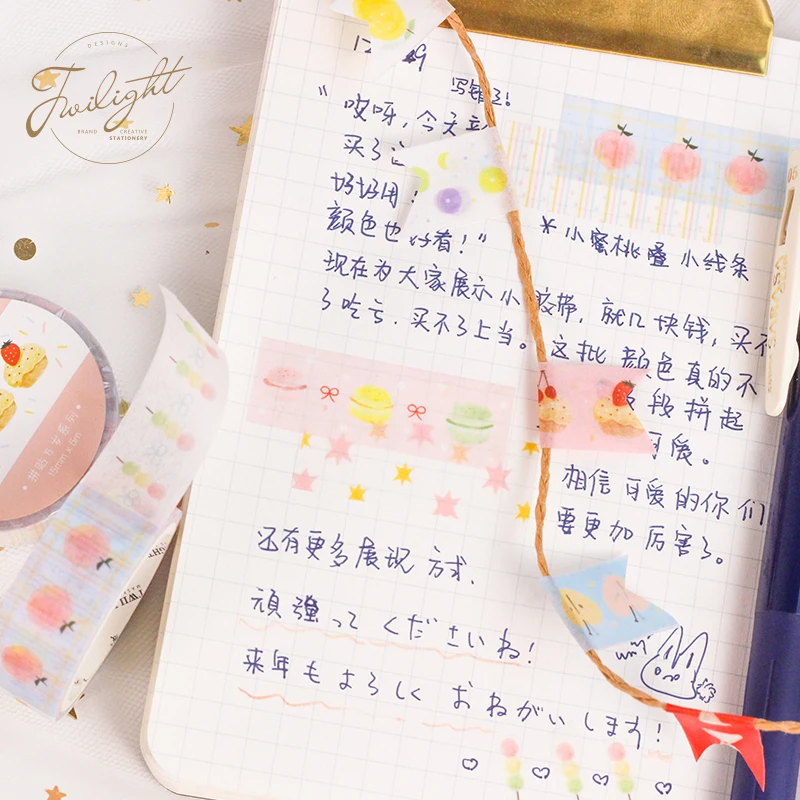 DESIGNS
Twilight
BRAND CREATIVE
STATIONERY
写错了!
"哎呀,今天
买了
好好用!
颜色也好看!"
*小蜜桃叠小线条
现在为大家展示小胶带,就几块钱,买不
了吃亏.买不了上当。这批颜色真的不
段拼起
可爱。
相信可爱的你们
要更加厉害了。
还有更多展现方式.
頑強ってくださいね!
来年もよろしくおねがいします!
15mm×5m